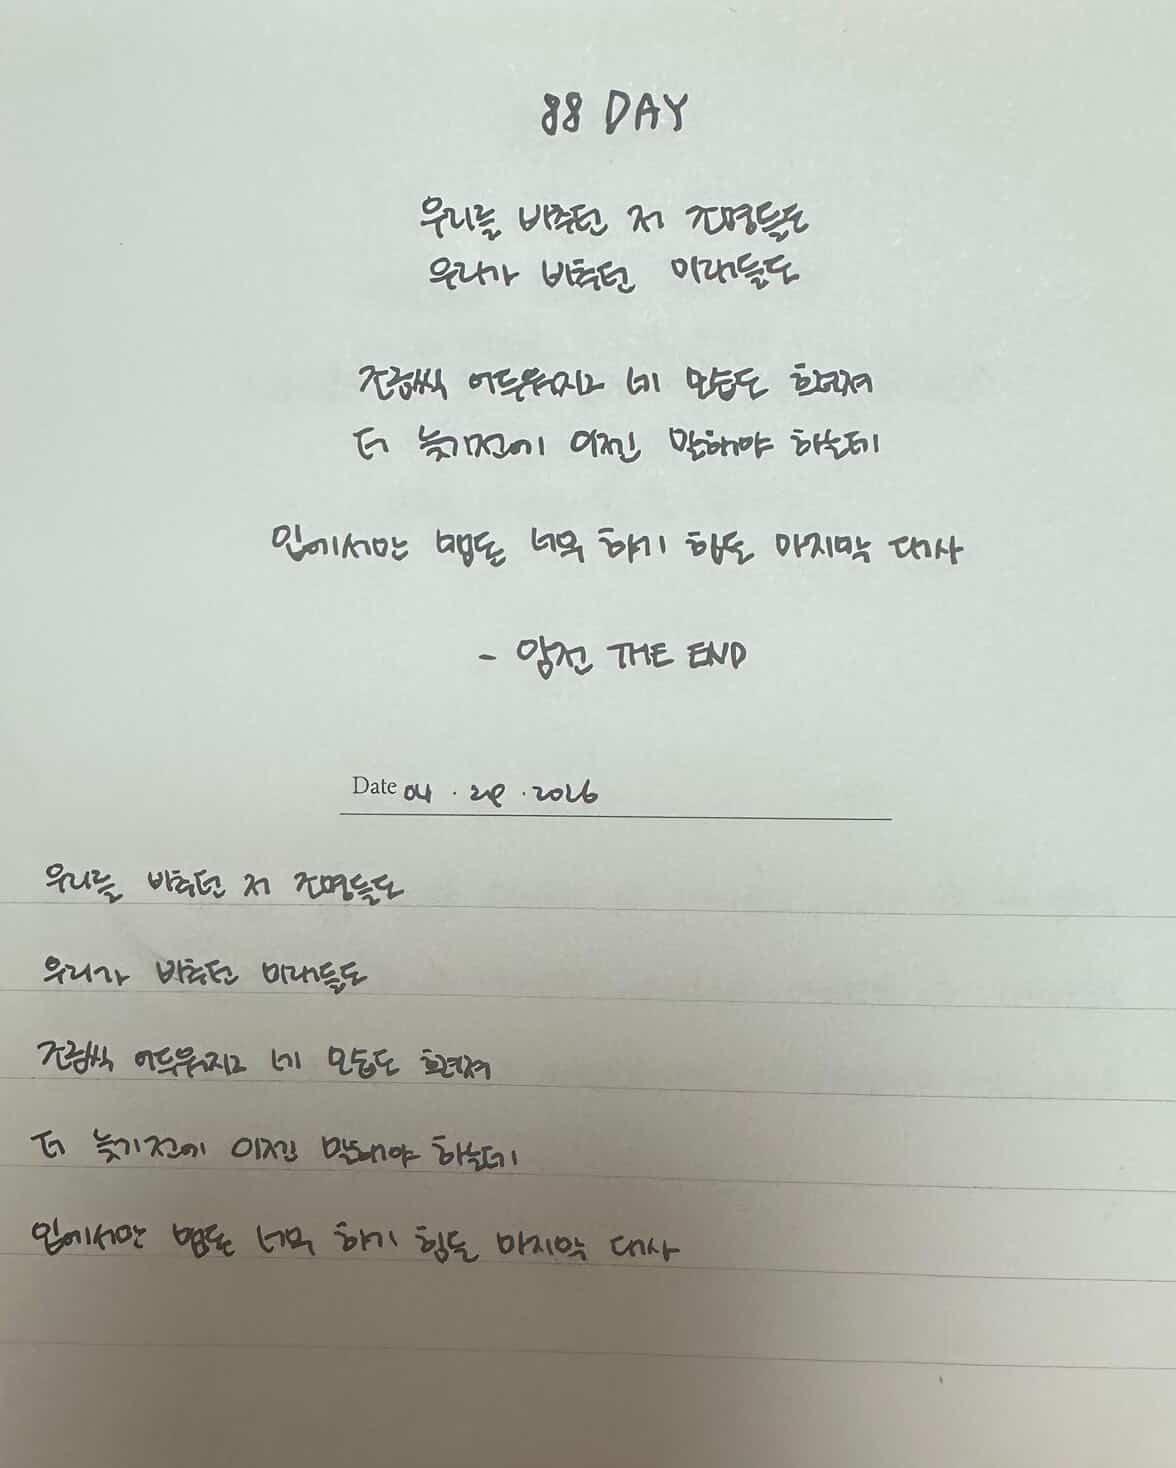 88 DAY
우리를 비추던 저 조명들도
우리가 비추던 미래들도
조금씩 어두워지고 네 모습도 흐려져
더 늦기전에 이젠 말해야 하는데
입에서만 맴돈 너무 하기 힘든 마지막 대사
- 암전 THE END
Date 04 · 29 · 2026
우리를 비추던 저 조명들도
우리가 비추던 미래들도
조금씩 어두워지고 네 모습도 흐려져
더 늦기전에 이젠 말해야 하는데
입에서만 맴돈 너무 하기 힘든 마지막 대사